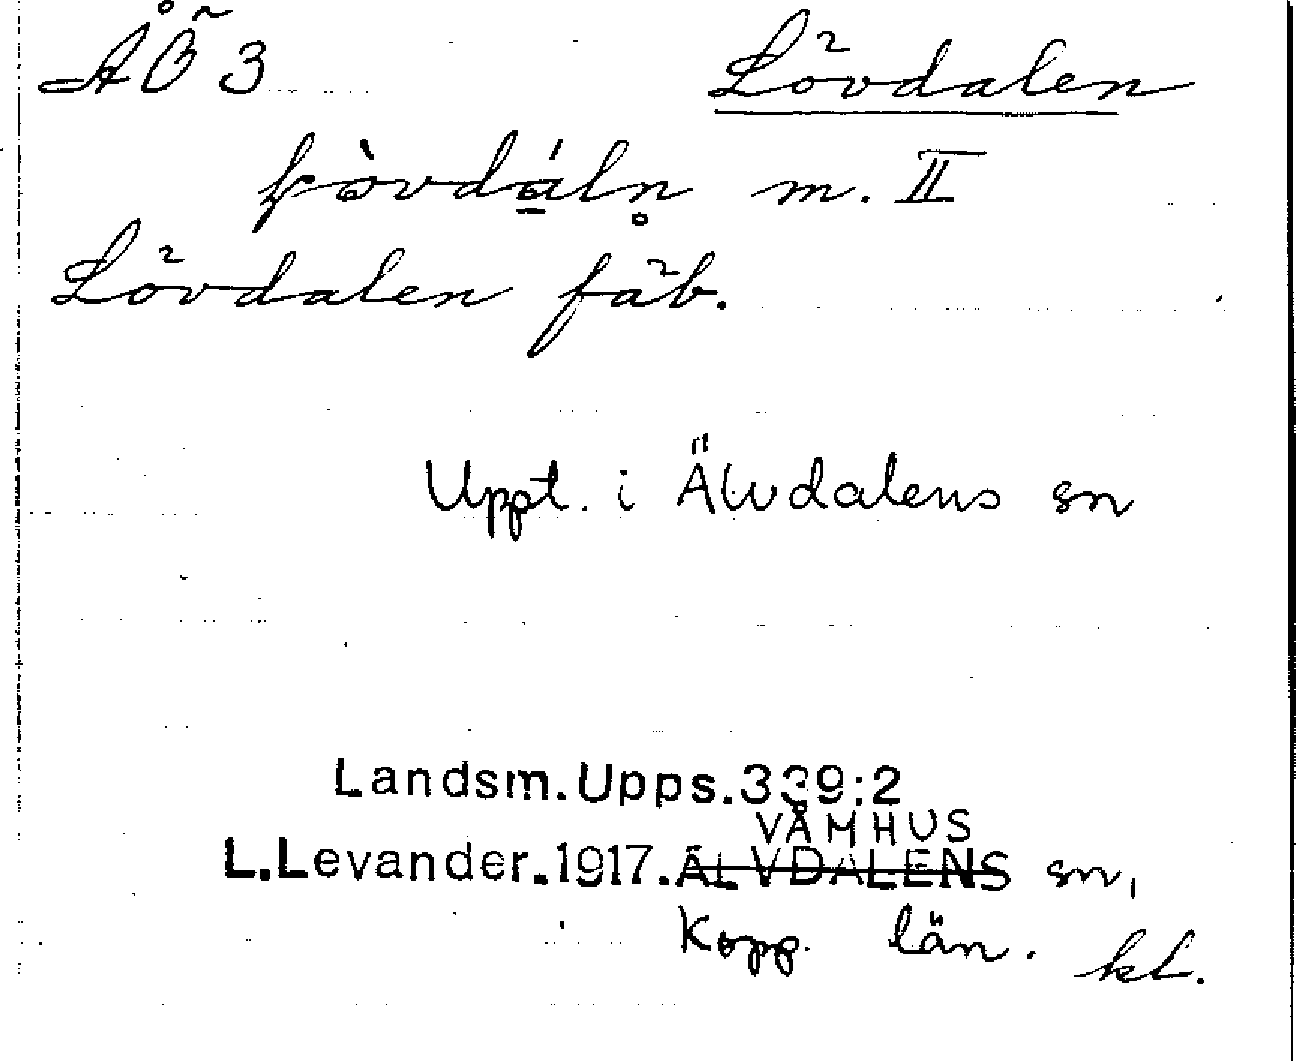 ÅÖ 3 Lövdalen
m. II
Lövdalen fäb.
Uppt. i Älvdalens sn
Landsm.Upps.339:2
VÅMHUS
L.Levander.1917.ÄLVDALENS sn,
Kopp. län. kL.